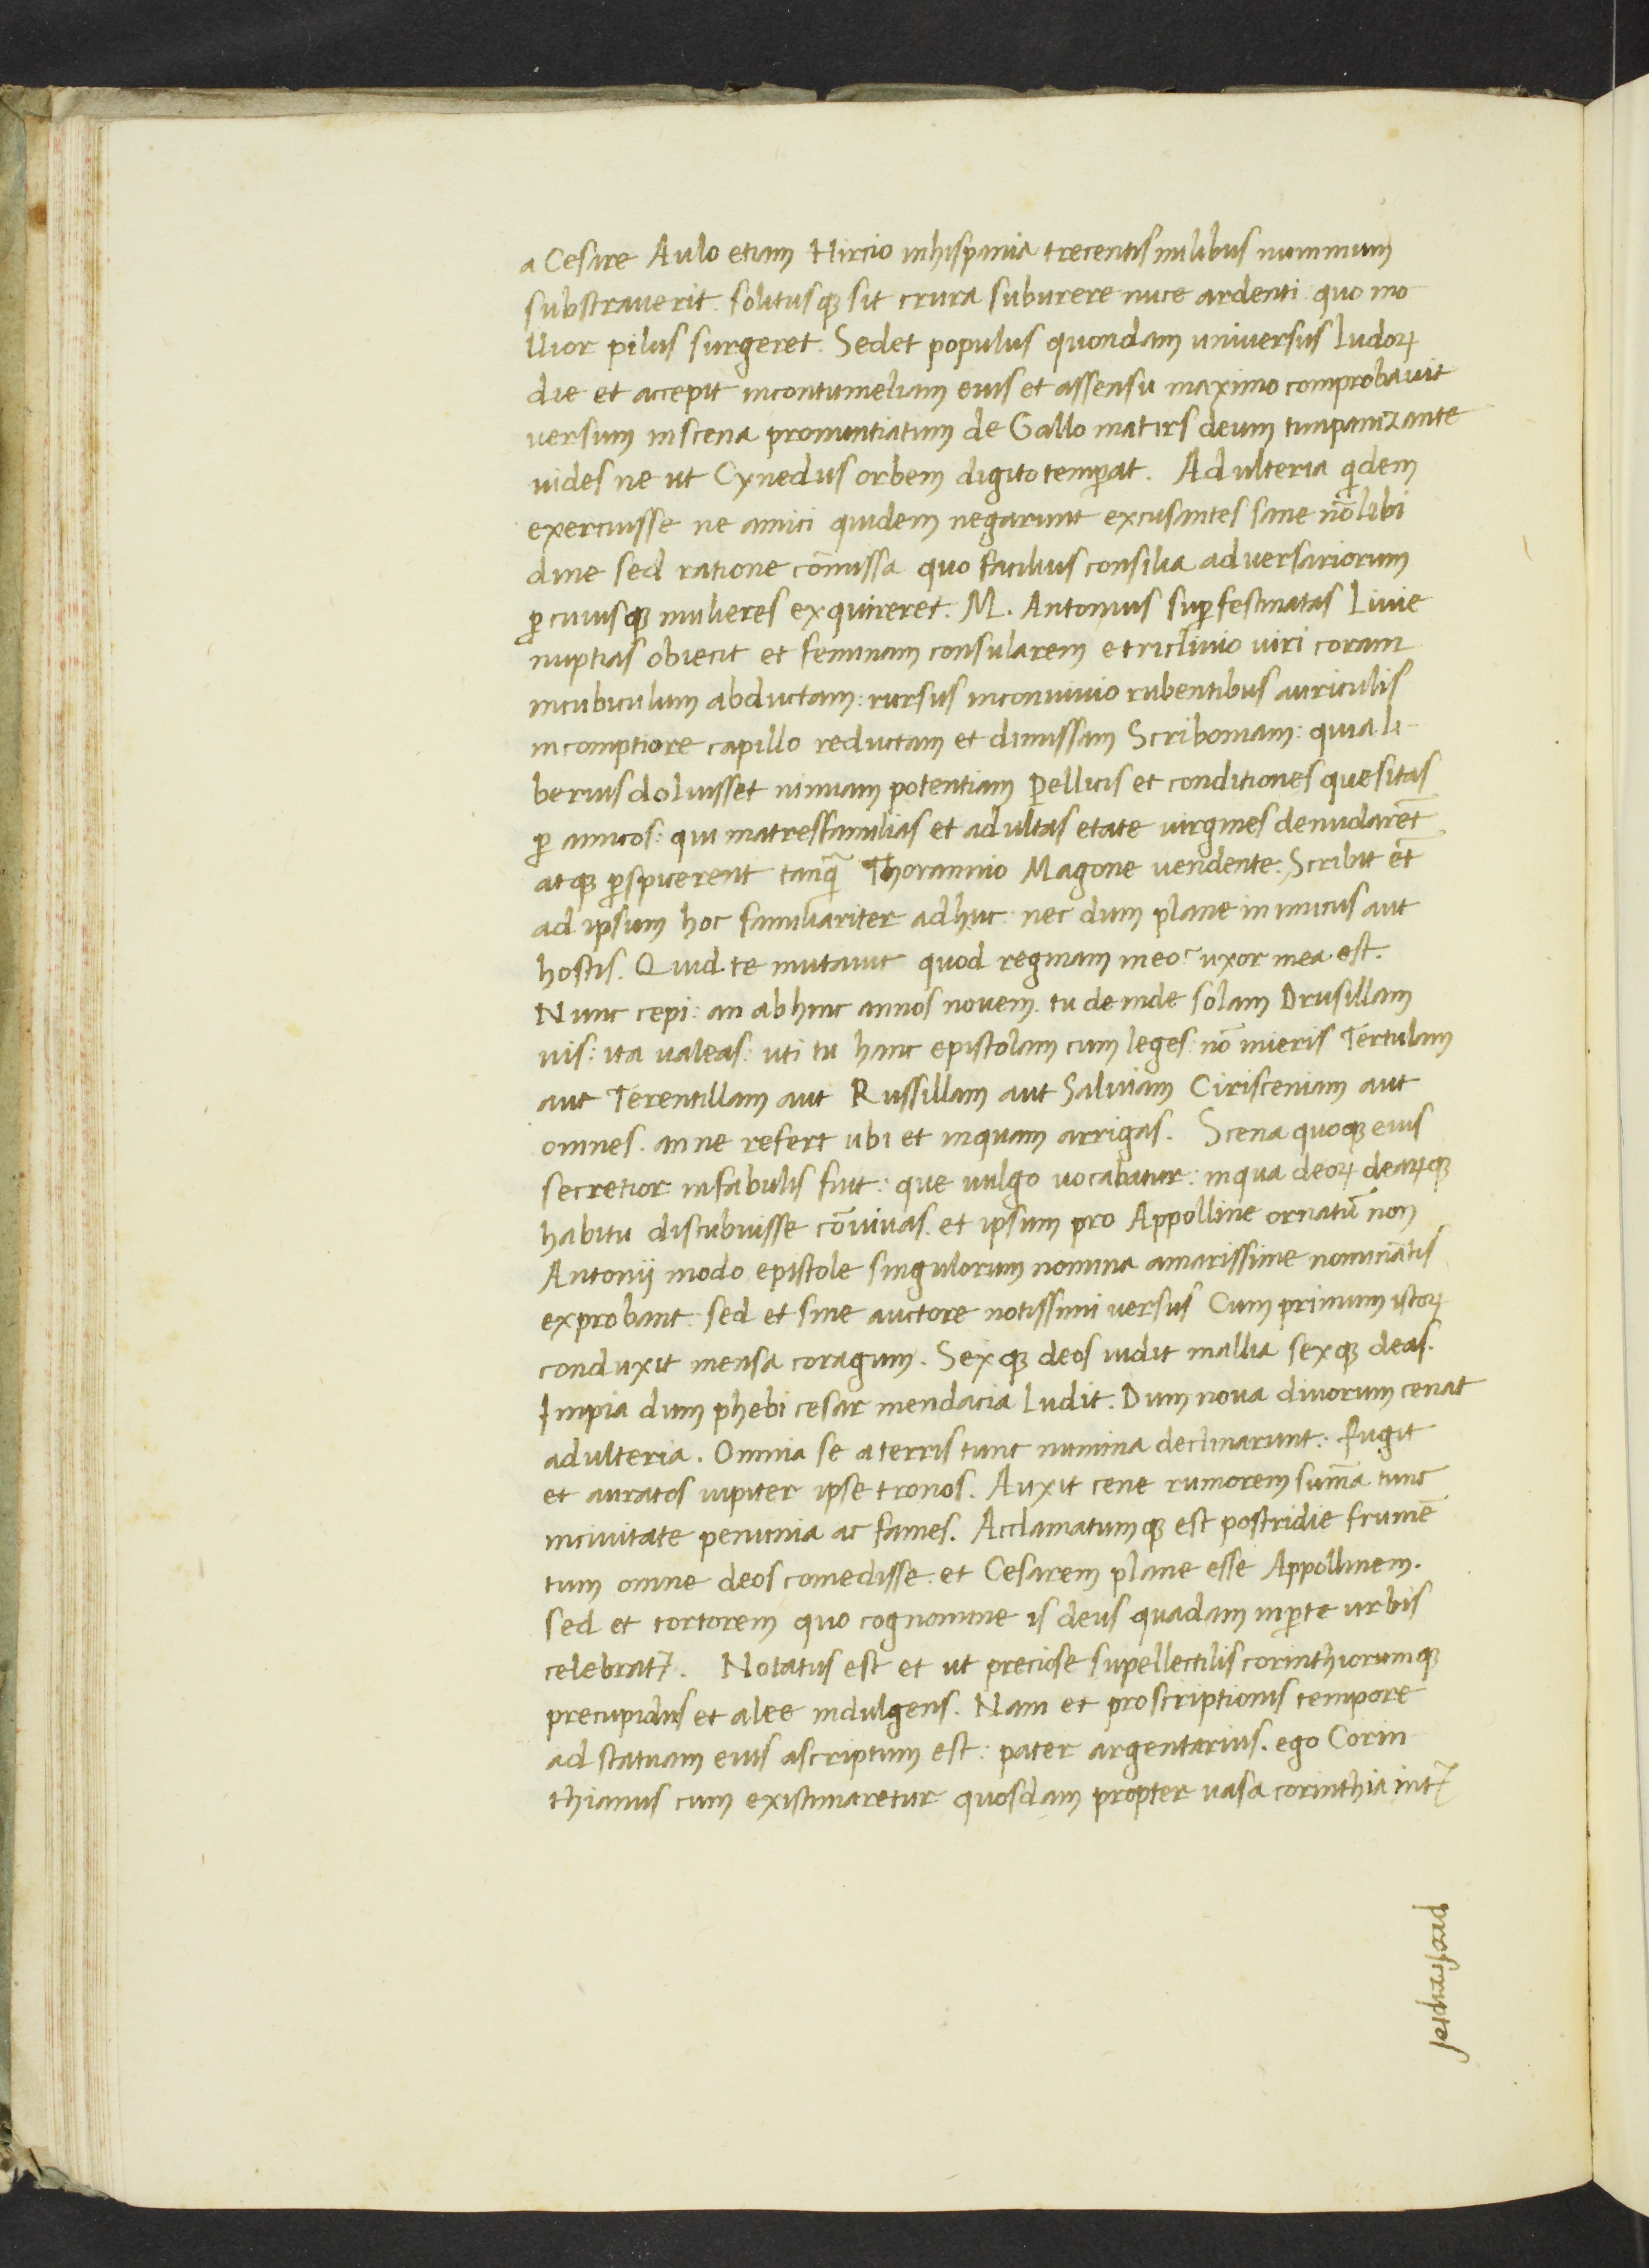 a Cesare Aulo etiam Hircio inhispania trecentis milibus nummum
substrauerit. solitusqꝫ sit crura suburere nuce ardenti quo mo
llior pilus surgeret. Sedet populus quondam universus ludoꝝ
die et accepit incontumeliam eius et assensu maximo comprobavit
versum inscena pronuntiatum de Gallo matirs deum timpanizante
uides ne ut Cynedus orbem digito temꝑat. Adulteria qͥdem
exercuisse ne amici quidem negarunt excusantes sane nō libi
dine sed ratione cōmissa quo facilius consilia adversariorum
ꝑ cuiusqꝫ mulieres exquireret. M. Antonius suꝑ festinatas Livie
nuptias obiecit et feminam consularem e triclinio viri coram
incubiculum abductam: rursus inconuiuio rubentibus auriculis
incomptiore capillo reductam et dimissam Scriboniam: quia li-
berius doluisset nimiam potentiam Pellicis et conditiones quesitas
ꝑ amicos: qui matresfamilias et adultas etate virgines denudarēt
atqꝫ ꝑspicerent tanqᷓ Thorannio Magone vendente. Scribit ēt
ad ipsum hoc familiariter adhuc: nec dum plane inimicus aut
hostis. Quid te mutauit quod reginam ineo? uxor mea est.
Nunc cepi: an abhinc annos novem. tu deinde solam Drusillam
uis: ita ualeas: uti tu hanc epistolam cum leges: nō inieris Tertulam
aut Terentillam aut Russillam aut Saluiam Cirisceniam aut
omnes. anne refert ubi et inquam arrigas. Scena quoqꝫ eius
secretior infabulis fuit: que uulgo uocabatur: inqua deoꝝ dearꝝqꝫ
habitu discubuisse cōuiuas. et ipsum pro Appolline ornatū non
Antonij modo epistole singulorum nomina amarissime nominātis
exprobant: sed et sine auctore notissimi versus Cum primum istoꝝ
conduxit mensa coragum. Sexqꝫ deos uidit mallia sexqꝫ deas.
Impia dum phebi cesar mendacia ludit. Dum noua diuorum cenat
adulteria. Omnia se a terris tunc numina declinarunt: fugit
et auratos iupiter ipse tronos. Auxit cene rumorem sum̄a tunc
inciuitate penuria ac fames. Acclamatumqꝫ est postridie frumē
tum omne deos comedisse. et Cesarem plane esse Appollinem.
sed et tortorem quo cognomine is deus quadam inꝑte urbis
celebrat᷑. Notatus est et ut preciose supellectilis corinthiorumqꝫ
precupidus et alee indulgens. Nam et proscriptionis tempore
ad statuam eius ascriptum est: pater argentarius. ego Corin
thianus cum existimaretur quosdam propter uasa corinthia int᷑